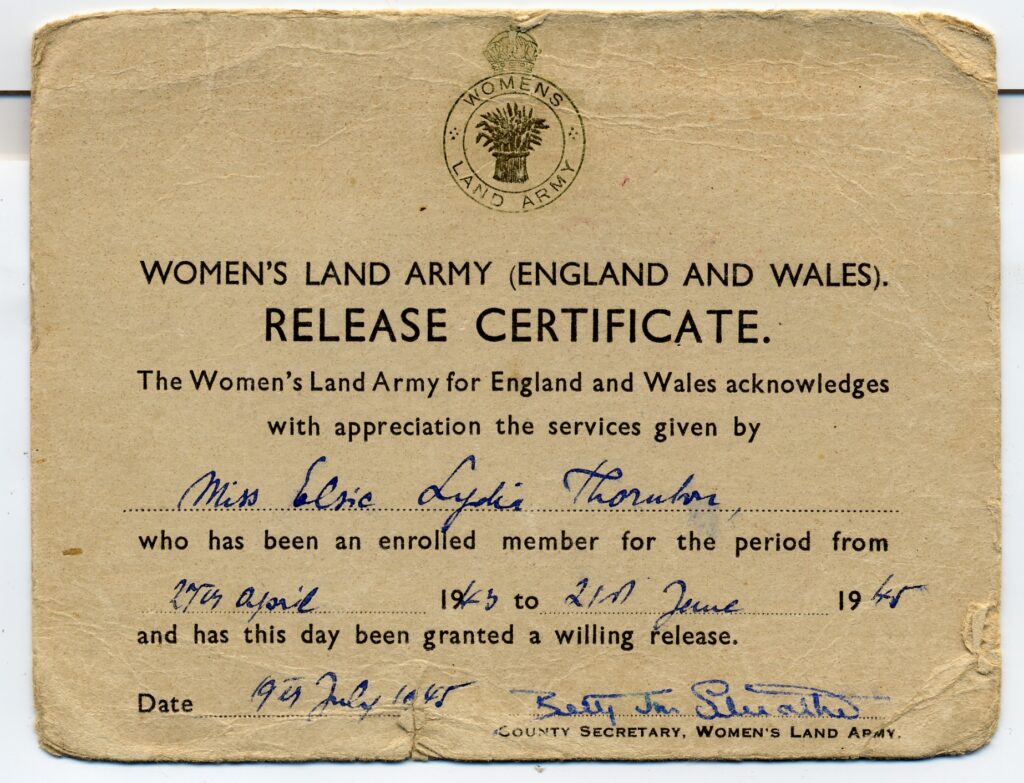 WOMENS
LAND ARMY
WOMEN'S LAND ARMY (ENGLAND AND WALES).
RELEASE CERTIFICATE.
The Women's Land Army for England and Wales acknowledges
with appreciation the services given by
Miss Elsie Lydia Thornton,
who has been an enrolled member for the period from
27th April 1943 to 21st June 1945
and has this day been granted a willing release.
Date 19th July 1945 Betty
COUNTY SECRETARY, WOMEN'S LAND ARMY.